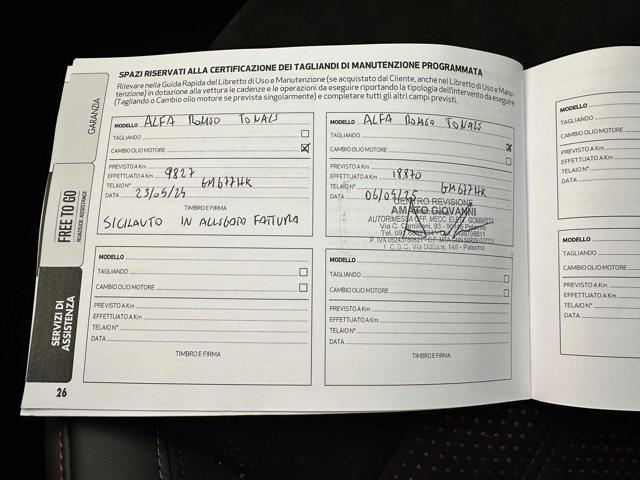 SPAZI RISERVATI ALLA CERTIFICAZIONE DEI TAGLIANDI DI MANUTENZIONE PROGRAMMATA
Rilevare nella Guida Rapida del Libretto di Uso e Manutenzione (se acquistato dal Cliente, anche nel Libretto di Uso e Manu-
tenzione) in dotazione alla vettura le cadenze e le operazioni da eseguire riportando la tipologia dell'intervento da eseguire
(Tagliando o Cambio olio motore se prevista singolarmente) e completare tutti gli altri campi previsti.
GARANZIA
FREE TO GO
ROADSIDE ASSISTANCE
SERVIZI DI
ASSISTENZA
MODELLO ALFA ROMEO TONALE
TAGLIANDO
CAMBIO OLIO MOTORE
PREVISTO A Km
EFFETTUATO A Km 9827
TELAIO N° GM677HK
DATA 23/05/24
TIMBRO E FIRMA
SICILAUTO IN ALLEGATO FATTURA
MODELLO ALFA ROMEO TONALE
TAGLIANDO
CAMBIO OLIO MOTORE
PREVISTO A Km
EFFETTUATO A Km 18.870
TELAIO N° GM677HK
DATA 06/05/25
CENTRO REVISIONE
AMATO GIOVANNI
AUTORIMESSA OFF. MECC. ELETT. GOMMISTA
Via C. Camilliani, 93 - 90145 Palermo
Palermo
MODELLO
TAGLIANDO
CAMBIO OLIO MOTORE
PREVISTO A Km
EFFETTUATO A Km
TELAIO N°
DATA
TIMBRO E FIRMA
MODELLO
TAGLIANDO
CAMBIO OLIO MOTORE
PREVISTO A Km
EFFETTUATO A Km
TELAIO N°
DATA
TIMBRO E FIRMA
26
MODELLO
TAGLIANDO
CAMBIO OLIO MOTORE
PREVISTO A Km
EFFETTUATO A Km
TELAIO N°
DATA
MODELLO
TAGLIANDO
CAMBIO OLIO MOTORE
PREVISTO A Km
EFFETTUATO A Km
TELAIO N°
DATA